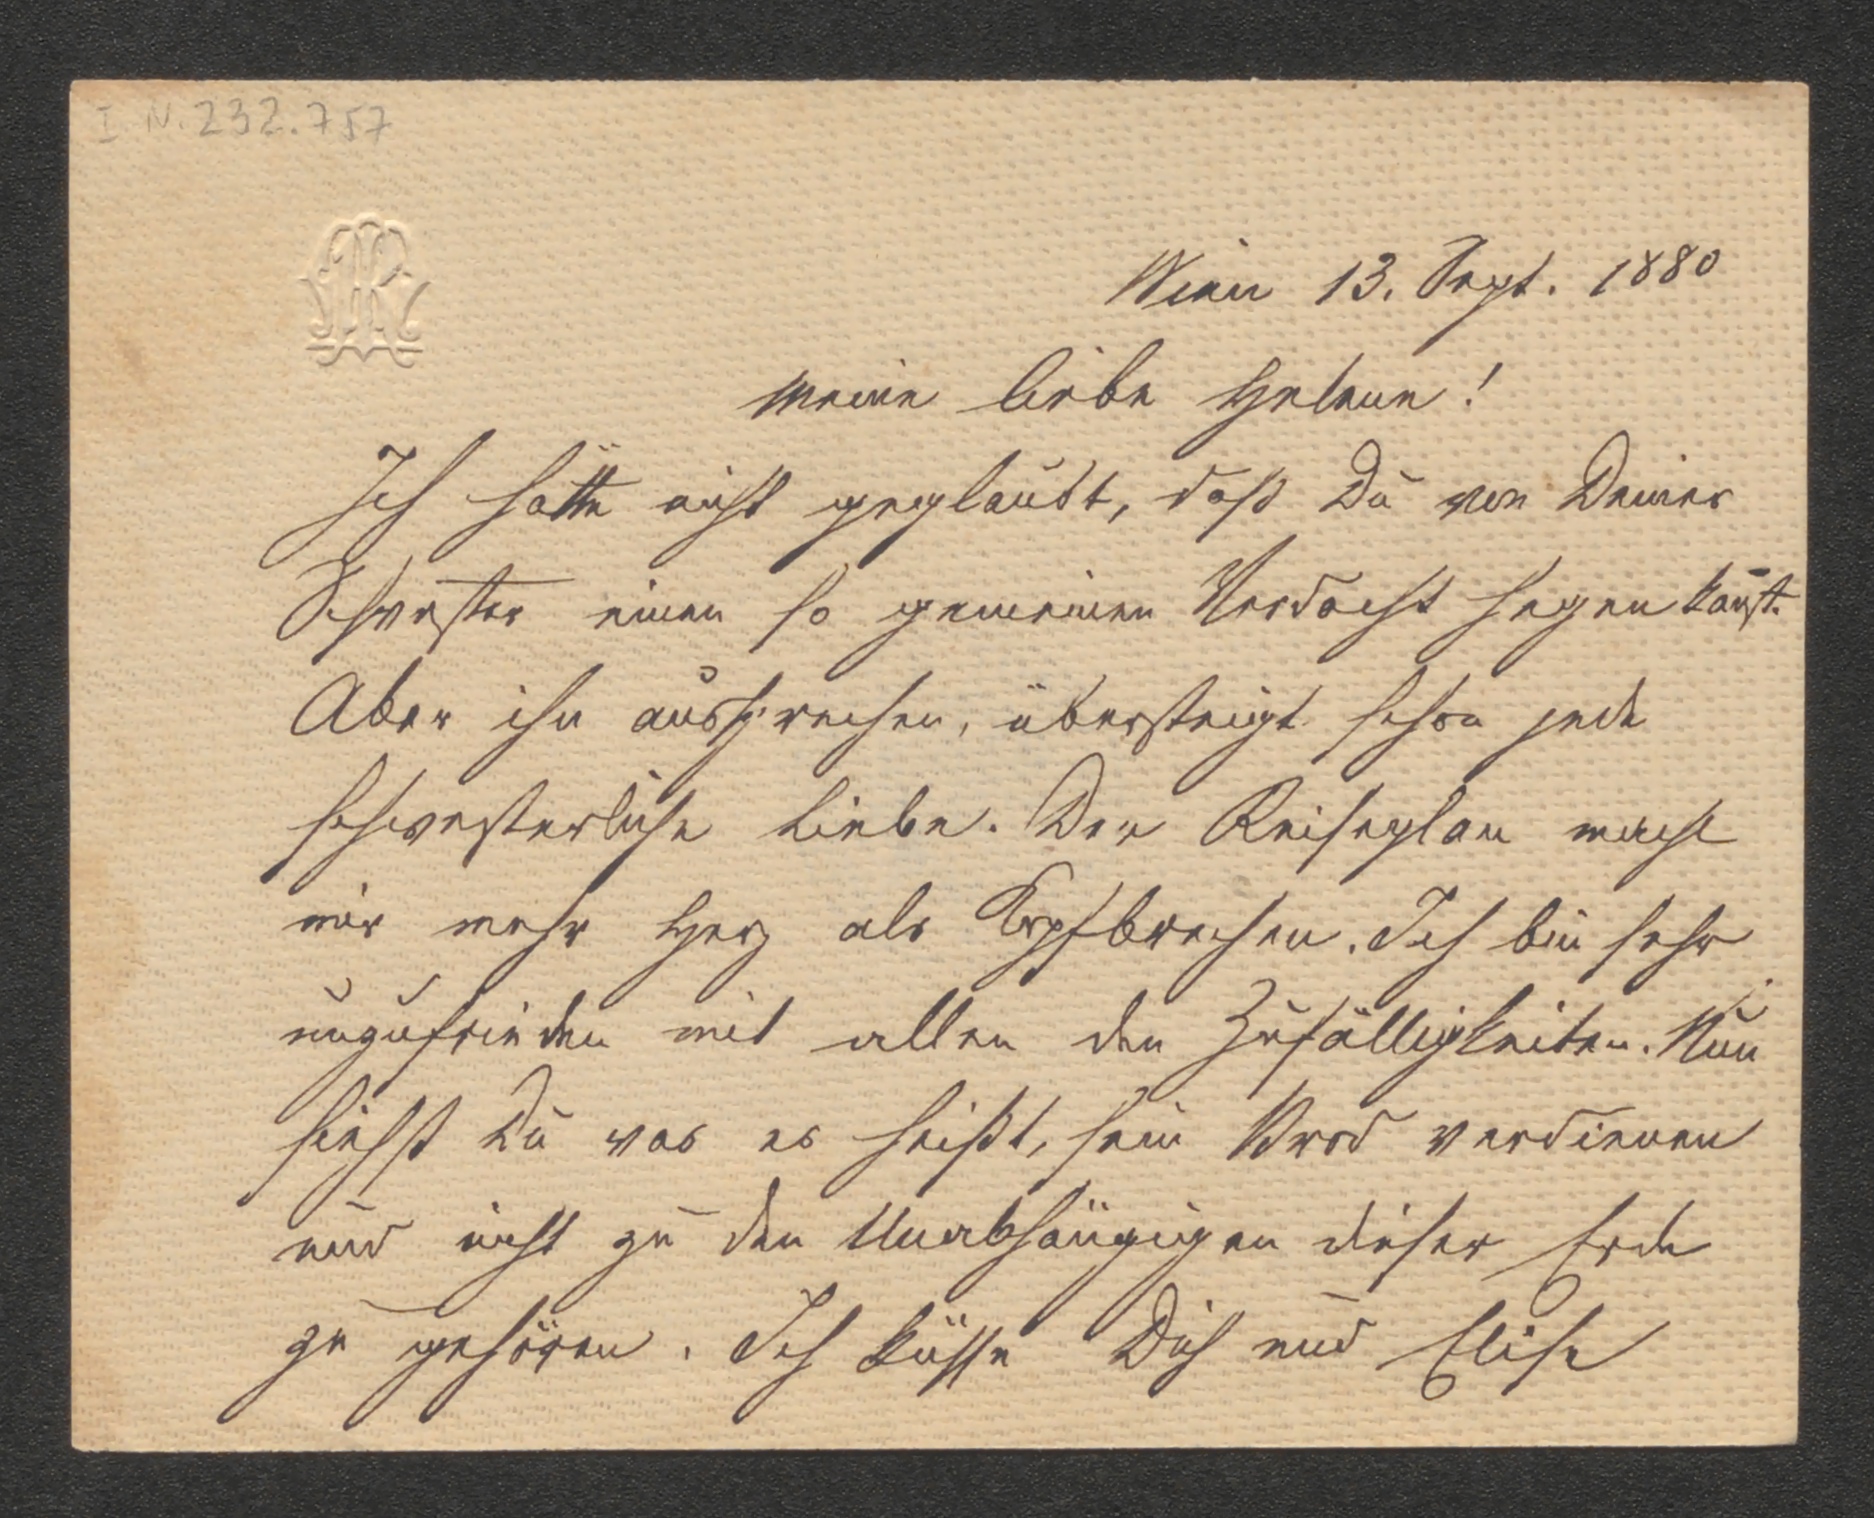 I N. 232.757
Wien 13. Sept. 1880
Meine liebe Helene!
Ich hätte nicht geglaubt, daß Du von Deiner
Schwester einen so gemeinen Verdacht hegen kan̄st.
Aber ihn aussprechen, übersteigt schon jede
schwesterliche Liebe. Der Reiseplan macht
mir mehr Herz als Kopfbrechen. Ich bin sehr
unzufrieden mit allen den Zufälligkeiten. Nun
siehst Du was es heißt, sein Brod verdienen
und nicht zu den Unabhängigen dieser Erde
zu gehören. Ich küsse Dich und Elise